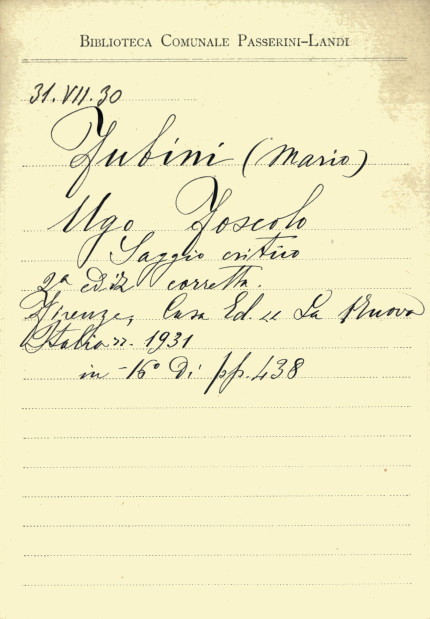 BIBLIOTECA COMUNALE PASSERINI-LANDI
31.VII.30
Fubini (Mario)
Ugo Foscolo
Saggio critico
2ª ediz corretta.
Firenze, Casa Ed. « La Nuova
Italia ». 1931
in -16º di pp. 438